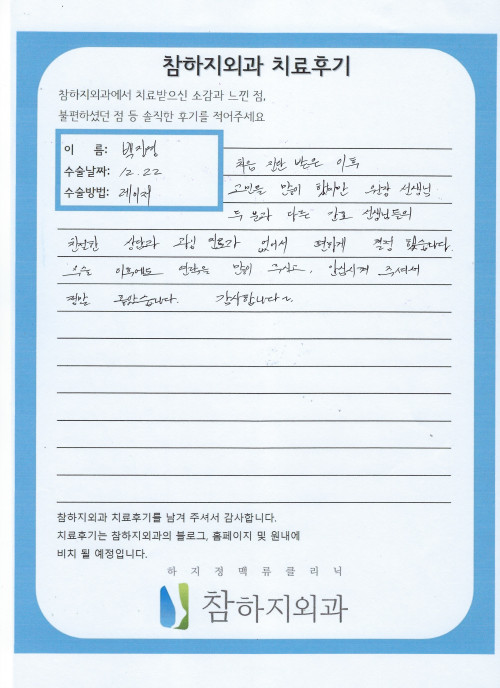 참하지외과 치료후기
참하지외과에서 치료받으신 소감과 느낀 점,
불편하셨던 점 등 솔직한 후기를 적어주세요
이 름: 백지영
수술날짜: 12.22
수술방법: 레이저
처음 진단 받은 이후
고민을 많이 했지만 원장 선생님
두 분과 다른 간호 선생님들의
친절한 상담과 과잉 진료가 없어서 편하게 결정 했습니다.
수술 이후에도 연락을 많이 주시고, 안심시켜 주셔서
정말 좋았습니다. 감사합니다~
참하지외과 치료후기를 남겨 주셔서 감사합니다.
치료후기는 참하지외과의 블로그, 홈페이지 및 원내에
비치 될 예정입니다.
하지정맥류클리닉
참하지외과